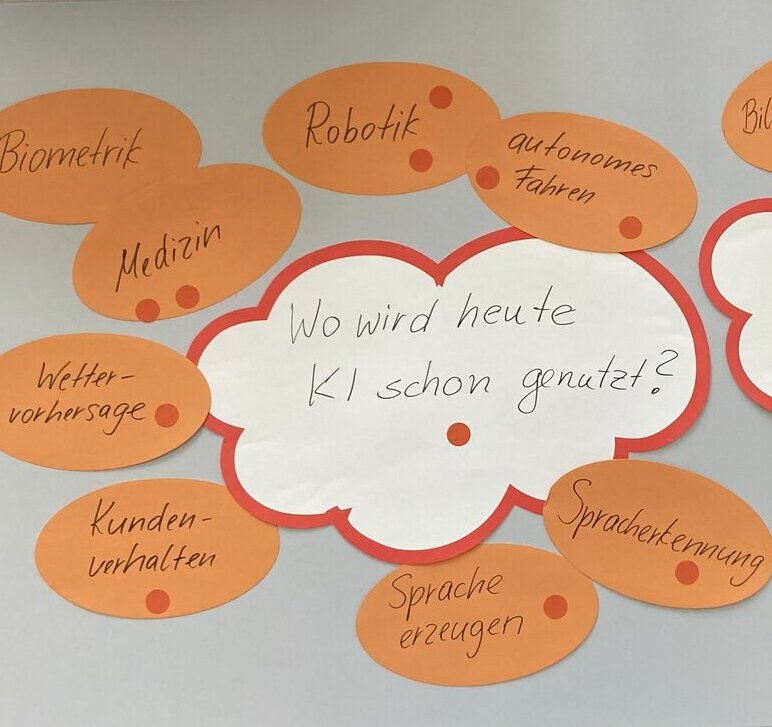 Biometrik
Robotik
autonomes
Fahren
Bil
Medizin
Wo wird heute
KI schon genutzt?
Wetter-
vorhersage
Kunden-
verhalten
Sprache
erzeugen
Spracherkennung